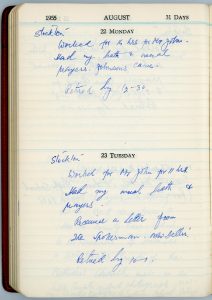 1955 AUGUST 31 DAYS
22 MONDAY
Stockton
Worked for 10 hrs for Mr John.
Had my bath & usual
prayers. Johnsons came.
Retired by 12-30.
23 TUESDAY
Stockton
Worked for Mr John for 11 hrs
Had my usual bath &
prayers.
Received a letter from
the Spokesman - New Delhi
Retired by